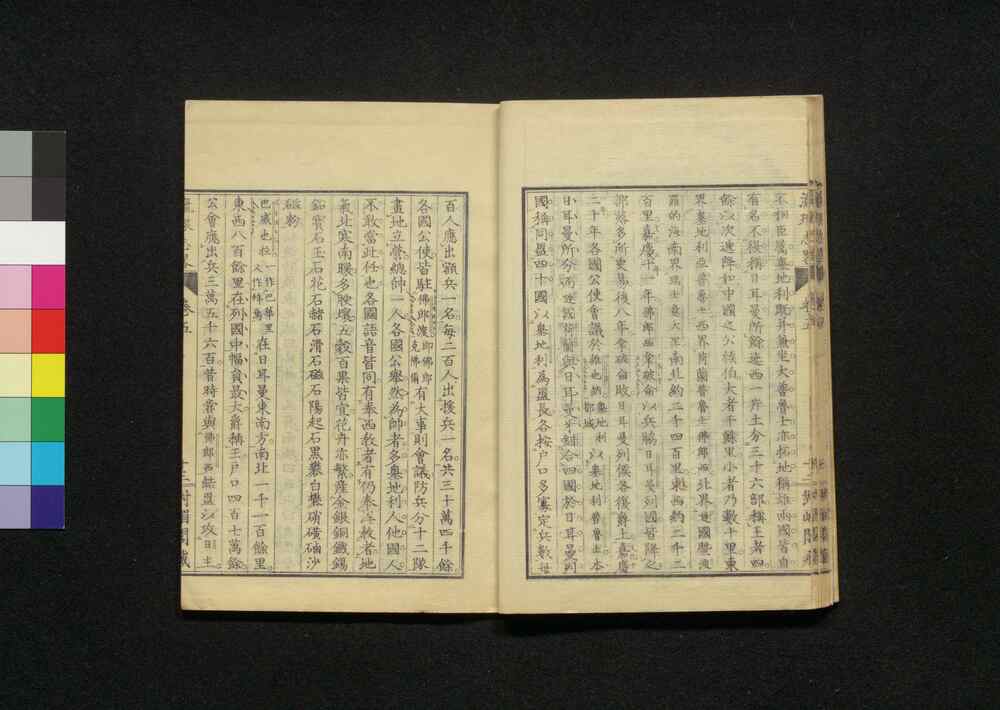 不相臣屬墺地利既并兼坐大普魯士亦拓地稱雄兩國皆自
有名不復稱日耳曼所餘迤西一片土分三十六部稱王者四
餘以次遞降如中國之公侯伯大者千餘里小者乃數十里東
界墺地利亞普魯士西界荷蘭普魯士佛郎西北界嗹國暨波
羅的海南界瑞士意大里南北約二千四百里東西約二千二
百里嘉慶十一年佛郎西拿破侖以兵脇日耳曼列國皆降之
郡縣多所更易後八年拿破侖敗日耳曼列侯各復爵土嘉慶
二十年各國公使會議於維也納墺地利都城以墺地利普魯士本
日耳曼所分荷蘭與日耳曼合四國於日耳曼列
國稱同盟四十國以墺地利為盟長各按戶口多寡定兵數每
百人應出額兵一名每二百人出援兵一名共三十萬四千餘
各國公使皆駐佛郎渡即佛郎克佛爾有大事則會議防兵分十二隊
畫地立營總帥一人各國公舉然為帥者多墺地利人他國人
不敢當此任也各國語音皆同有泰西教者有仍奉洋教者地
氣北寒南暖多腴壤五穀百果皆宜花卉亦繁產金銀銅鐵錫
鉛寶石玉石花石赭石滑石磁石陽起石黑礬白礬硝磺硇沙
磁粉
巴威也拉一作巴華里人作峰烏在日耳曼東南方南北一千一百餘里
東西八百餘里在列國中幅員最大爵稱王戶口四百七萬餘
公會應出兵三萬五千六百昔時嘗與佛郎西結盟以攻日主
卷五